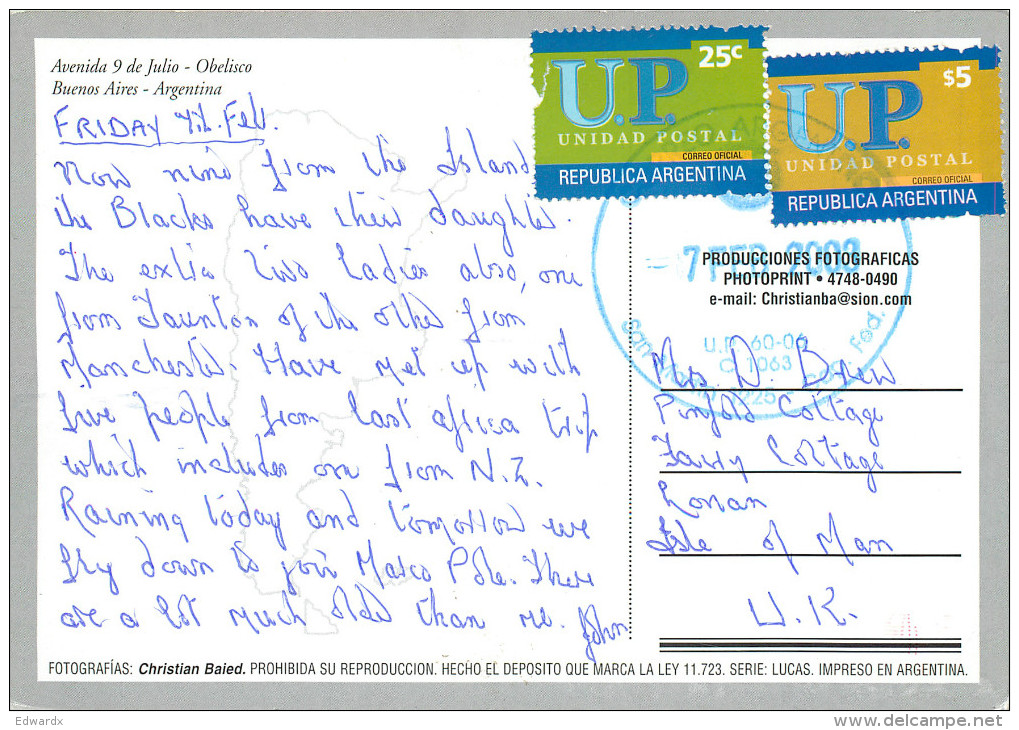 Avenida 9 de Julio - Obelisco
Buenos Aires - Argentina
FRIDAY 7th. Feb.
Now nine from the Island
the Blacks have their daughter.
The extra two Ladies also, one
from Taunton & the other from
Manchester. Have met up with
five people from last africa trip
which includes one from N.Z.
Raining today and tomorrow we
fly down to join Marco Polo. There
are a lot much older than me. John
25c
U.P.
UNIDAD POSTAL
CORREO OFICIAL
REPUBLICA ARGENTINA
$5
U.P.
UNIDAD POSTAL
CORREO OFICIAL
REPUBLICA ARGENTINA
- 7 FEB 2003
U.P. 60-06
C 1063
PRODUCCIONES FOTOGRAFICAS
PHOTOPRINT • 4748-0490
e-mail: Christianba@sion.com
Mrs D. Brew
Pinfold Cottage
Fairy Cottage
Lonan
Isle of Man
U.K.
FOTOGRAFÍAS: Christian Baied. PROHIBIDA SU REPRODUCCION. HECHO EL DEPOSITO QUE MARCA LA LEY 11.723. SERIE: LUCAS. IMPRESO EN ARGENTINA.
Edwardx
delcampe.net